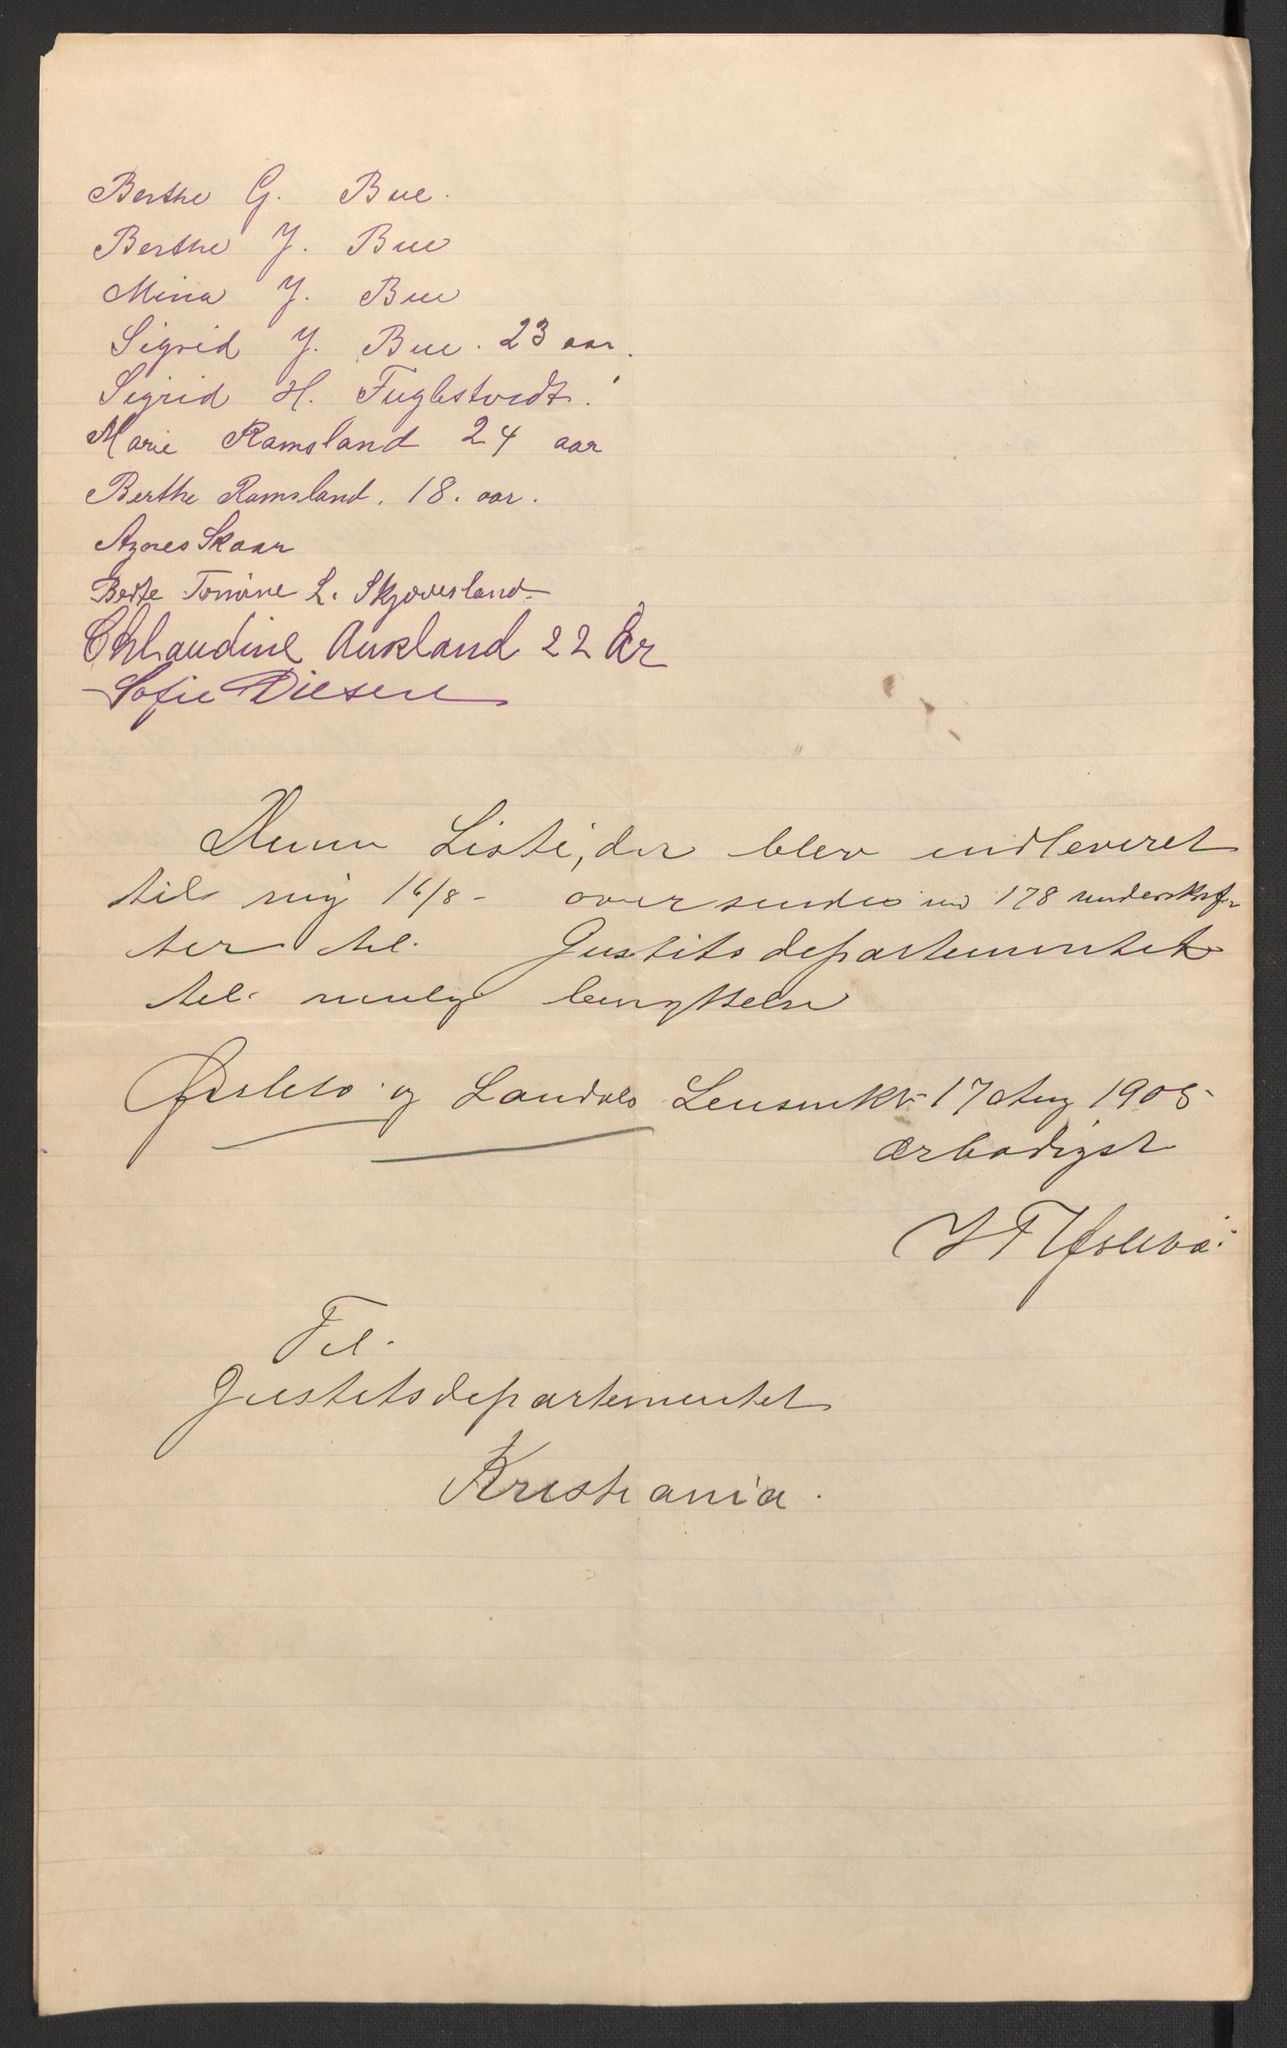 Berthe G. Bue.
Berthe J. Bue
Mina J. Bue
Sigrid J. Bue. 23 aar.
Sigrid H. Fuglestvedt.
Marie Ramsland 24 aar
Berthe Ramsland. 18. aar.
Agnes Skaar
Berte Tomine L. Skjæveland
Chlaudine Aukland 22 År
Sofie Olesen
Denne Liste, der blev indleveret
til mig 16/8 - oversendes med 178 underskrif-
ter til Justitsdepartementet
til mulig benyttelse
Øslebø og Laudals Lensmkt 17 Aug 1905
ærbødigst
Øslebø
Til
Justitsdepartementet
Kristiania.